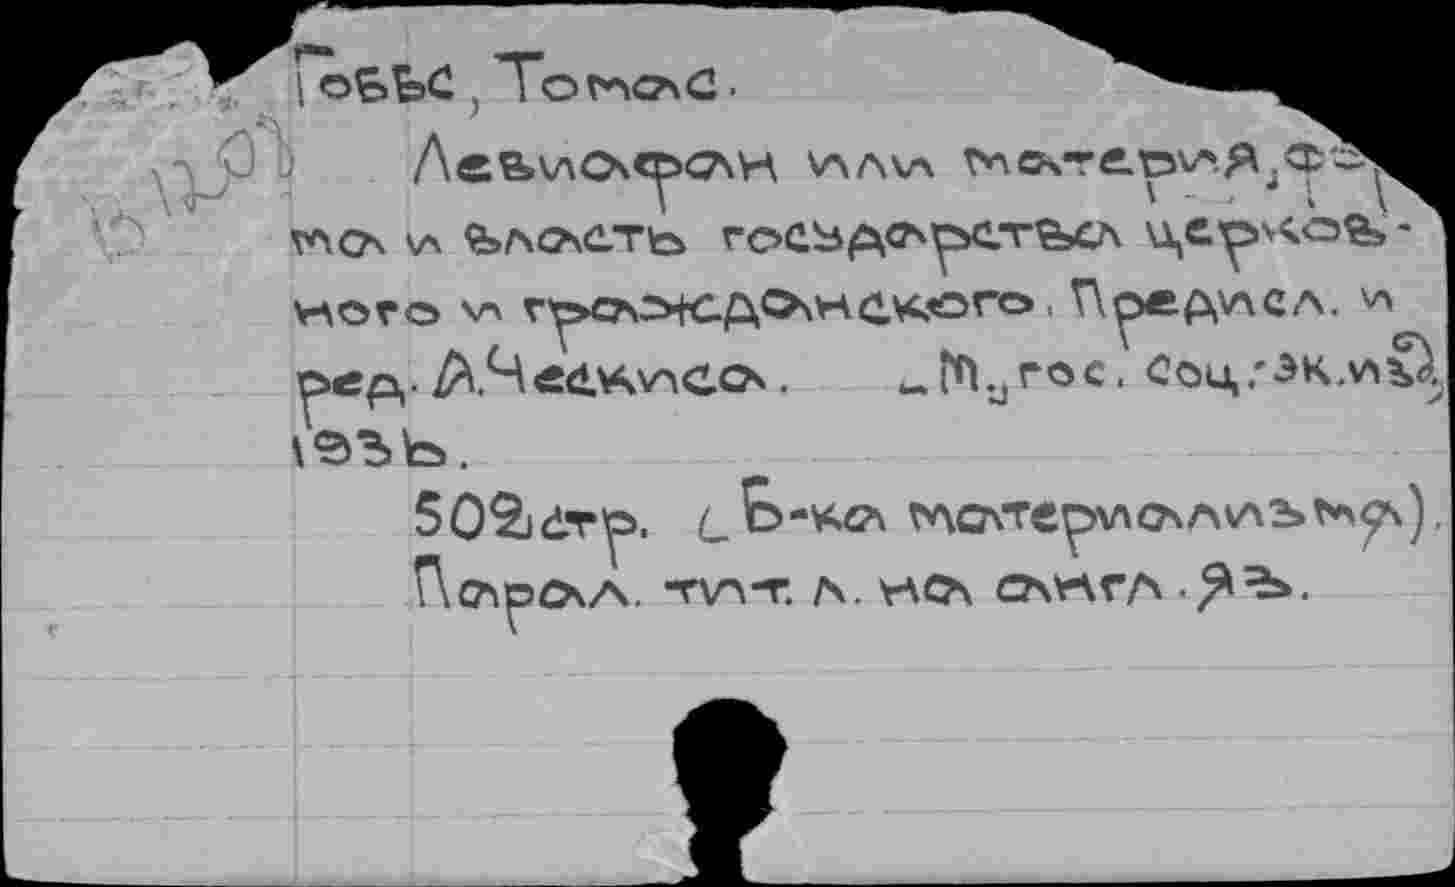 Гоббс, Томас.
Левиафан или материя, фор
ма и власть государства церков-
ного и гражданского. Предисл. и
ред. А.Ческиса. [М.] гос. соц.-эк.изд.
1936.
502 стр. (Б-ка материализма).
Парал. тит. л. на англ. яз.